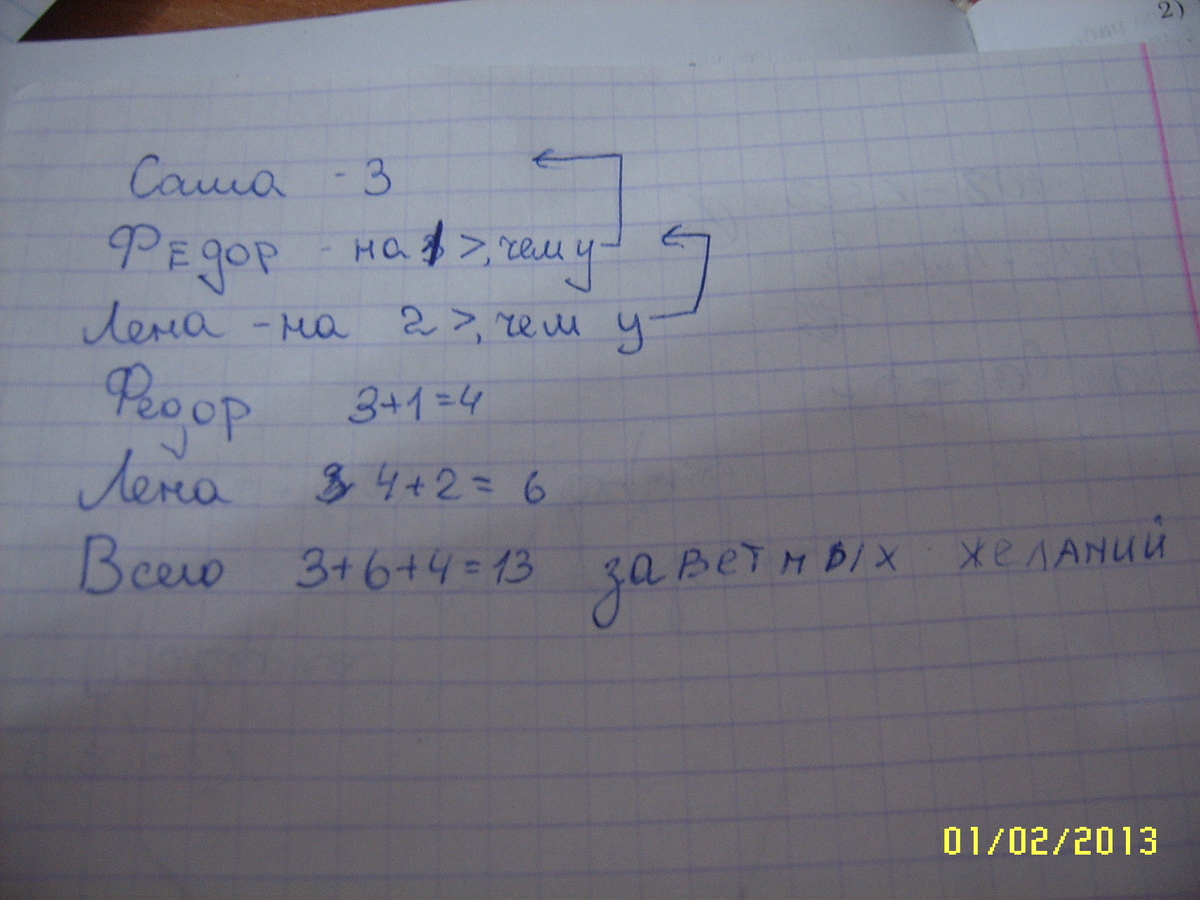 2)
Саша - 3
Федор - на 1 >, чем у
Лена - на 2 >, чем у
Федор 3+1=4
Лена 4+2= 6
Всего 3+6+4=13 заветных желаний
01/02/2013